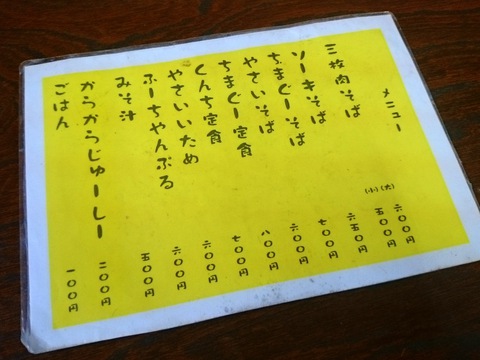 メニュー
三枚肉そば (大) 六〇〇円
(小) 五〇〇円
ソーキそば 六五〇円
ちまぐーそば 七〇〇円
やさいそば 六〇〇円
ちまぐー定食 八〇〇円
くんち定食 七〇〇円
やさいいため 六〇〇円
ふーちゃんぷる 六〇〇円
みそ汁 五〇〇円
からからじゅーしー 二〇〇円
ごはん 一〇〇円